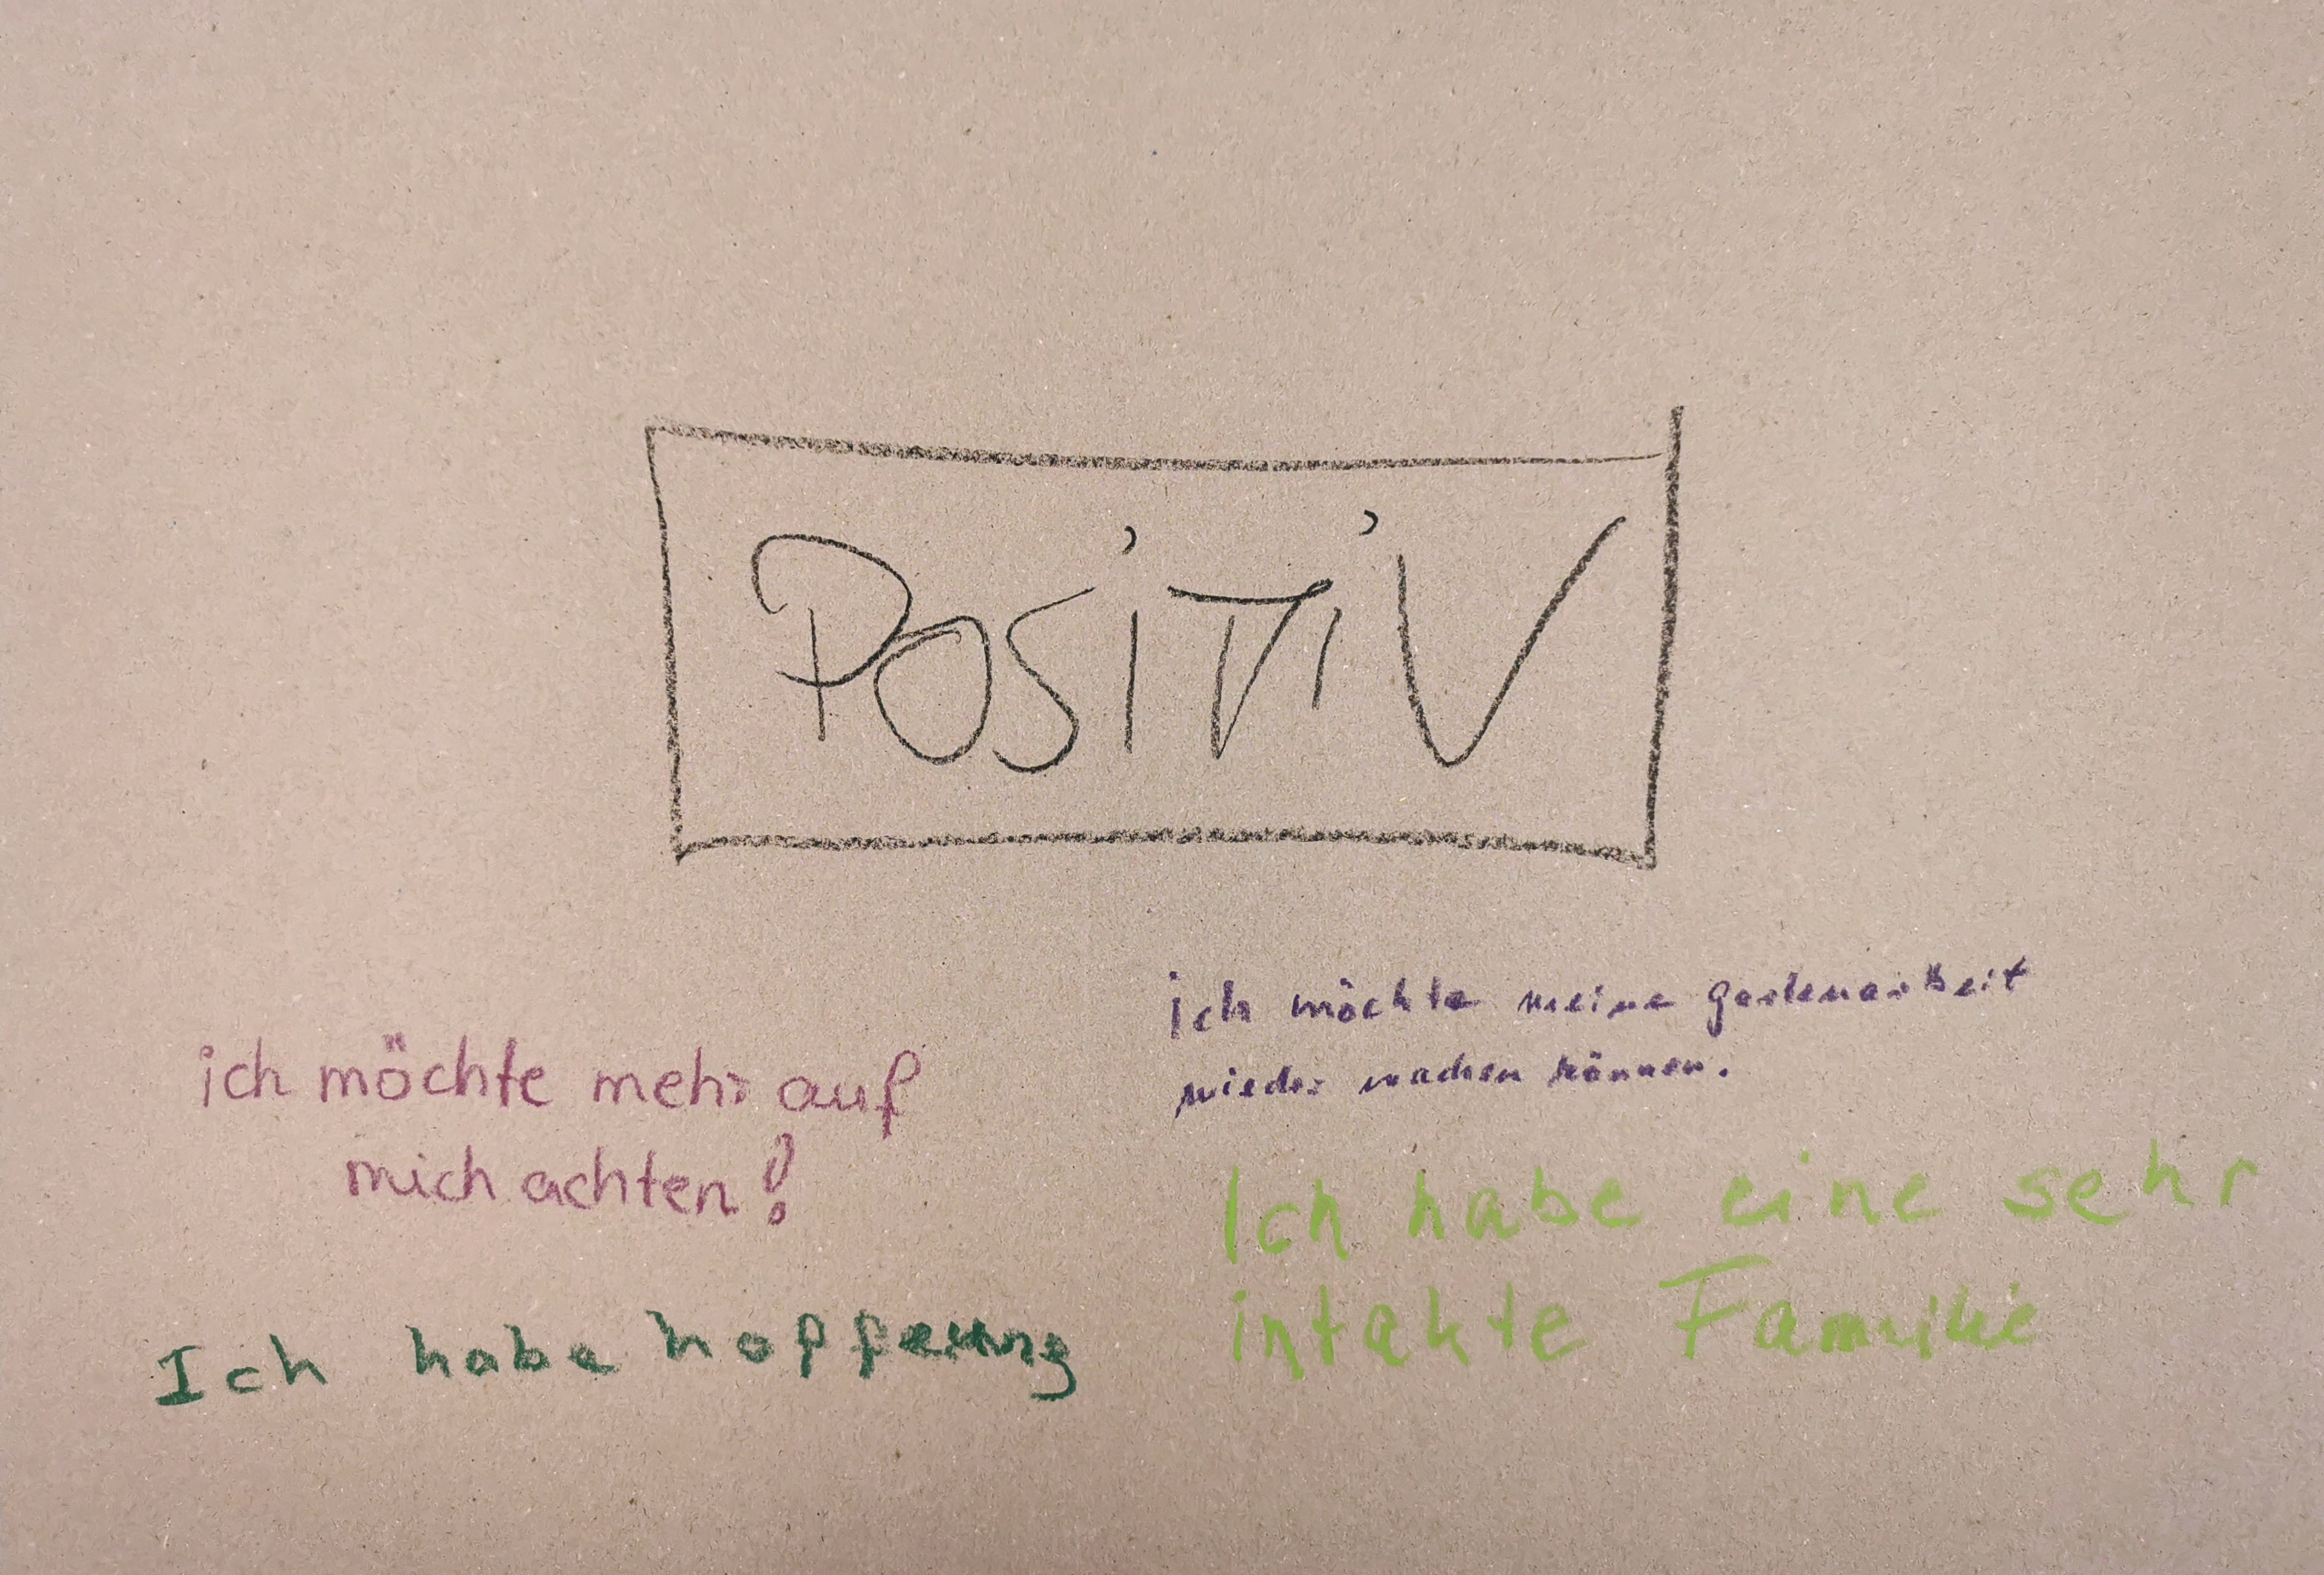 PosiTiV
ich möchte mehr auf
mich achten!
ich möchte meine gartenarbeit
wieder machen können.
Ich habe eine sehr
intakte Familie
Ich habe hoffenung